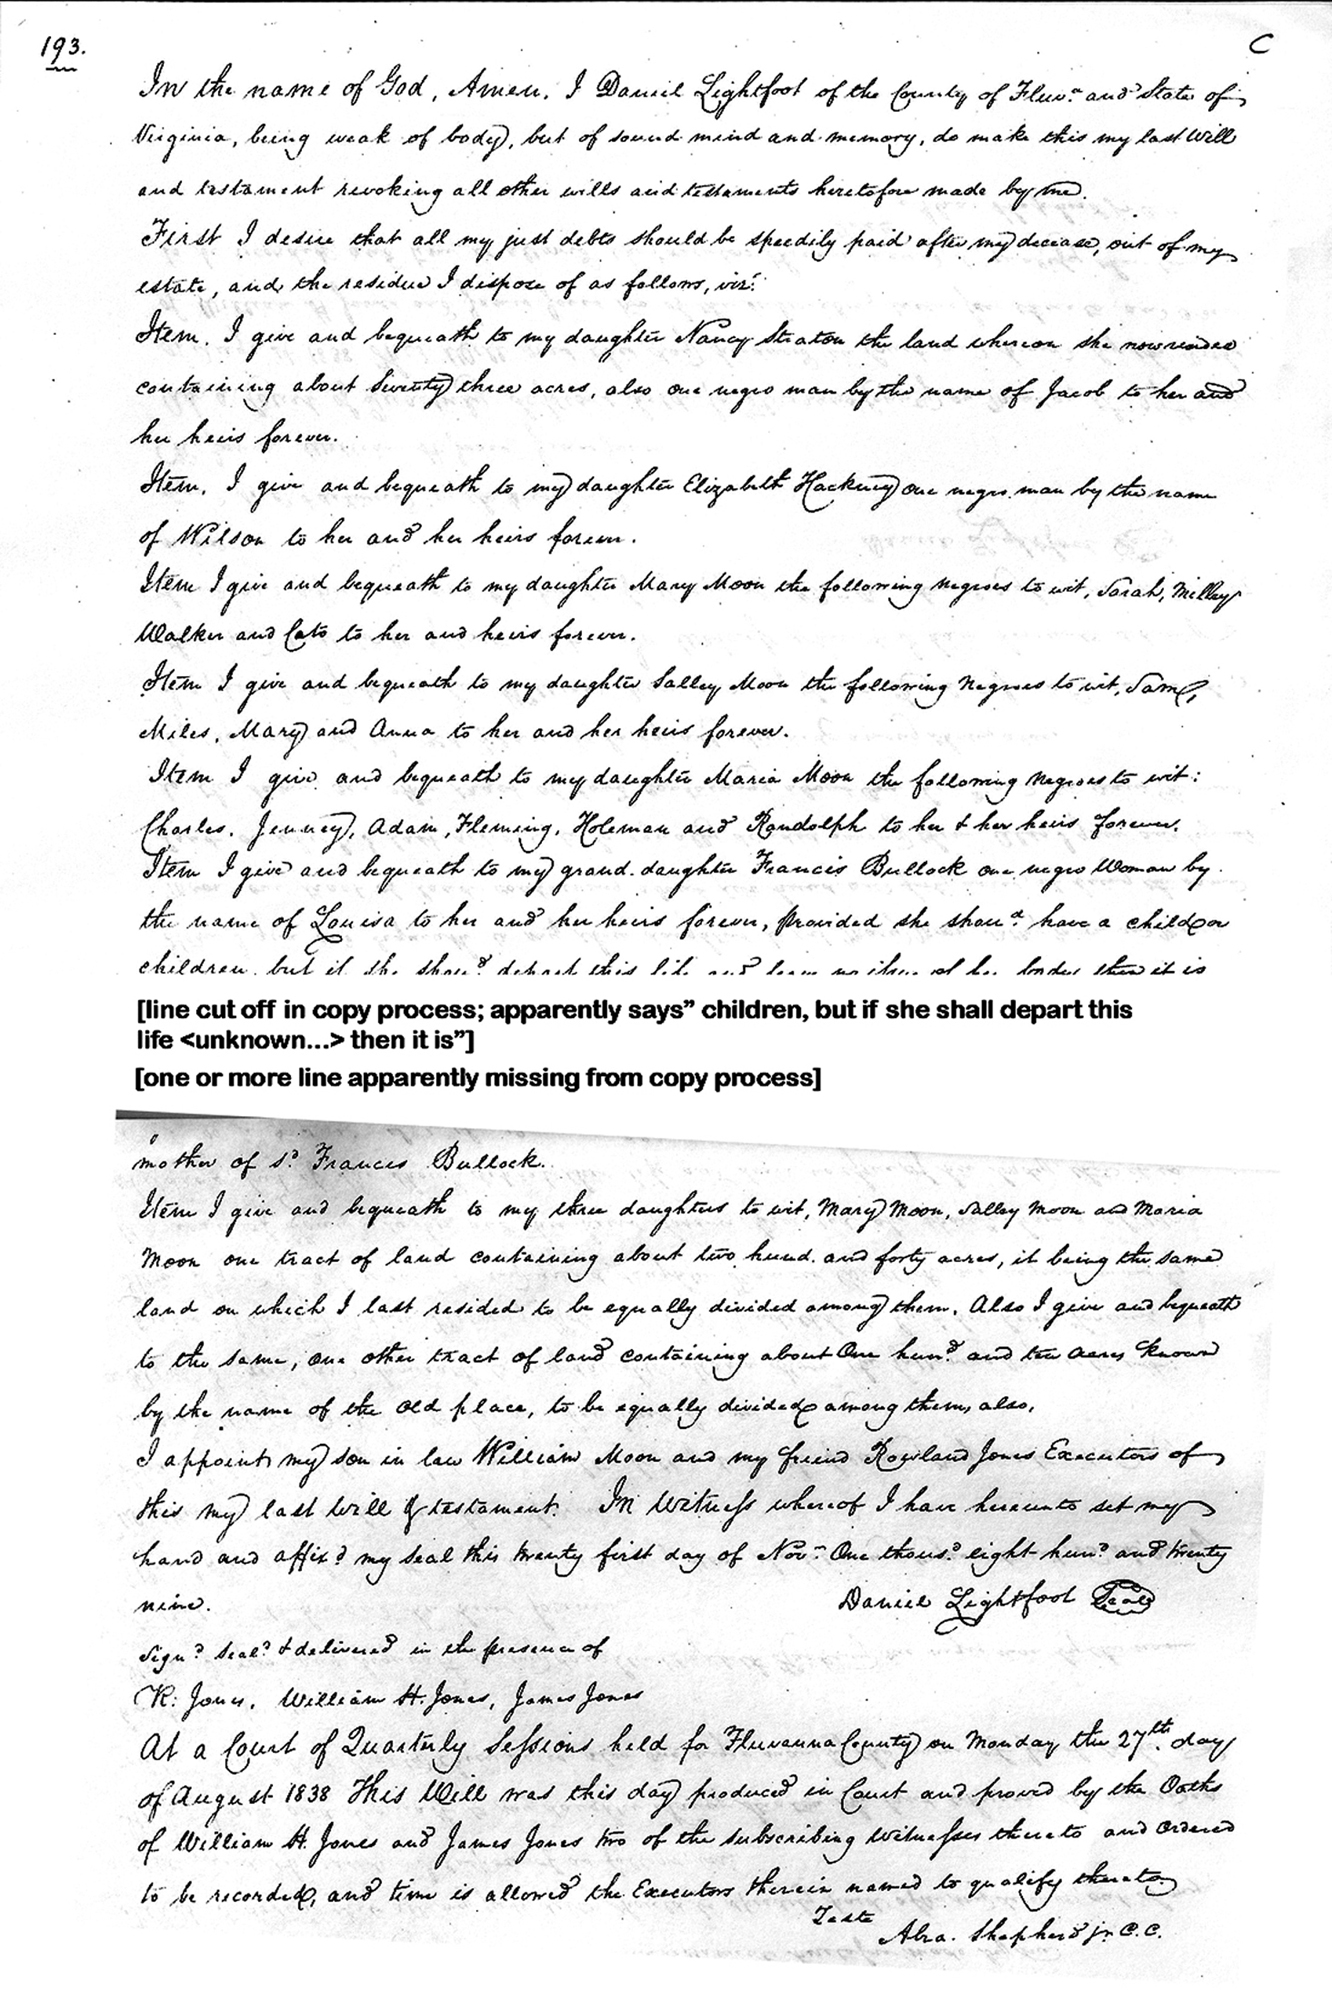 193.
C
In the name of God, Amen. I Daniel Lightfoot of the County of Fluv.a and State of
Virginia, being weak of body, but of sound mind and memory, do make this my last Will
and testament revoking all other wills and testaments heretofore made by me.
First I desire that all my just debts should be speedily paid after my decease, out of my
estate, and the residue I dispose of as follows, viz:
Item. I give and bequeath to my daughter Nancy Straton the land whereon she now resides
containing about Seventy three acres, also one negro man by the name of Jacob to her and
her heirs forever.
Item. I give and bequeath to my daughter Elizabeth Hackney one negro man by the name
of Wilson to her and her heirs forever.
Item I give and bequeath to my daughter Mary Moon the following negroes to wit, Sarah, Milley
Walker and Cato to her and heirs forever.
Item I give and bequeath to my daughter Salley Moon the following Negroes to wit, Sam,
Miles, Mary and Anna to her and her heirs forever.
Item I give and bequeath to my daughter Maria Moon the following negroes to wit:
Charles, Jenney, Adam, Fleming, Holeman and Randolph to her & her heirs forever.
Item I give and bequeath to my grand-daughter Francis Bullock one negro Woman by
the name of Louisa to her and her heirs forever, provided she shou.d have a child or
children but if she shou.d depart this life and leave no then it is
[line cut off in copy process; apparently says” children, but if she shall depart this
life <unknown...> then it is”]
[one or more line apparently missing from copy process]
mother of s.d Francis Bullock.
Item I give and bequeath to my three daughters to wit, Mary Moon, Salley Moon and Maria
Moon one tract of land containing about two hund. and forty acres, it being the same
land on which I last resided to be equally divided among them. Also I give and bequeath
to the same, one other tract of land containing about One hun.d and ten acres known
by the name of the old place, to be equally divided among them, also.
I appoint my son in law William Moon and my friend Rowland Jones Executors of
this my last Will & testament. In Witness whereof I have hereunto set my
hand and affix.d my Seal this twenty first day of Nov.r One thous.d eight hun.d and twenty
nine.
Daniel Lightfoot Seal
Sign.d Seal.d & delivered in the presence of
R: Jones, William H. Jones, James Jones
At a Court of Quarterly Sessions held for Fluvanna County on Monday the 27th. day
of August 1838 This Will was this day produced in Court and proved by the Oaths
of William H. Jones and James Jones two of the subscribing Witnesses thereto and ordered
to be recorded, and time is allowed the Executors therein named to qualify thereto
Teste
Abra. Shepherd jr. C.C.